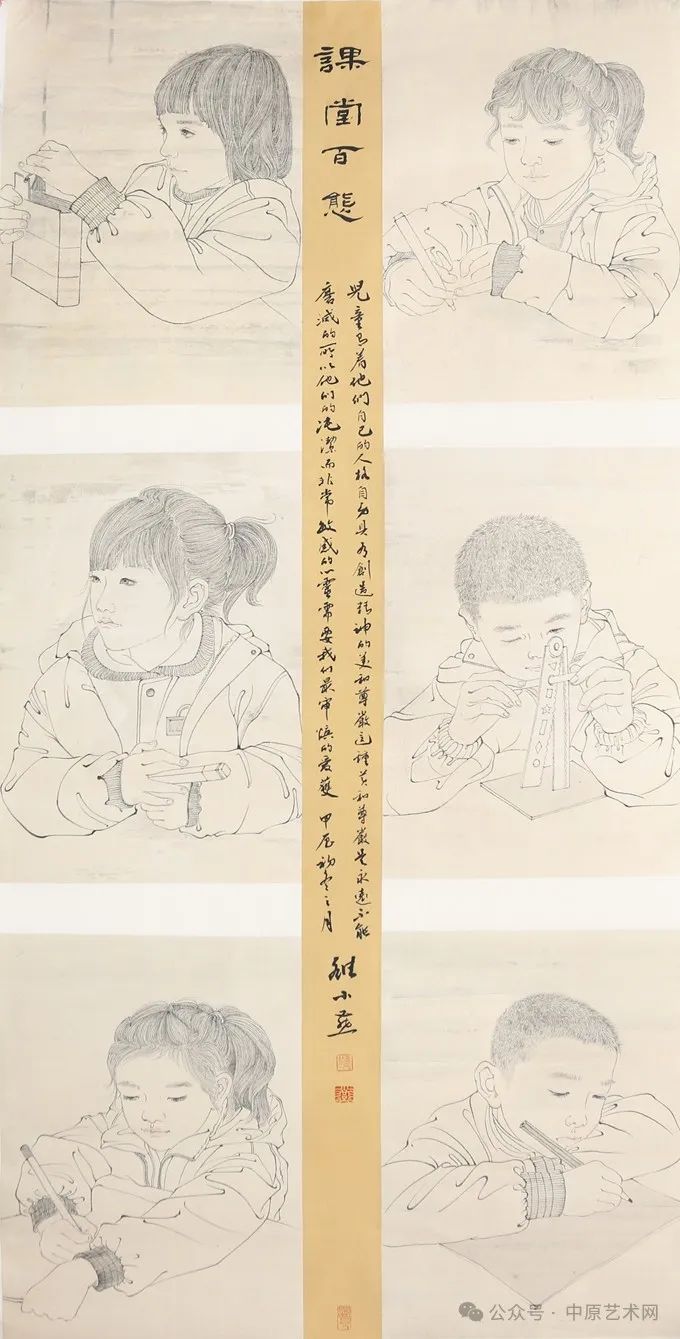 課堂百態
兒童有着他們自己的人格自身具有創造精神的美和尊嚴這種美和尊嚴是永遠不能
磨滅的所以他们的純潔而非常敏感的心靈需要我们最審慎的愛護 甲辰初冬之月
小燕
公众号 · 中原艺术网